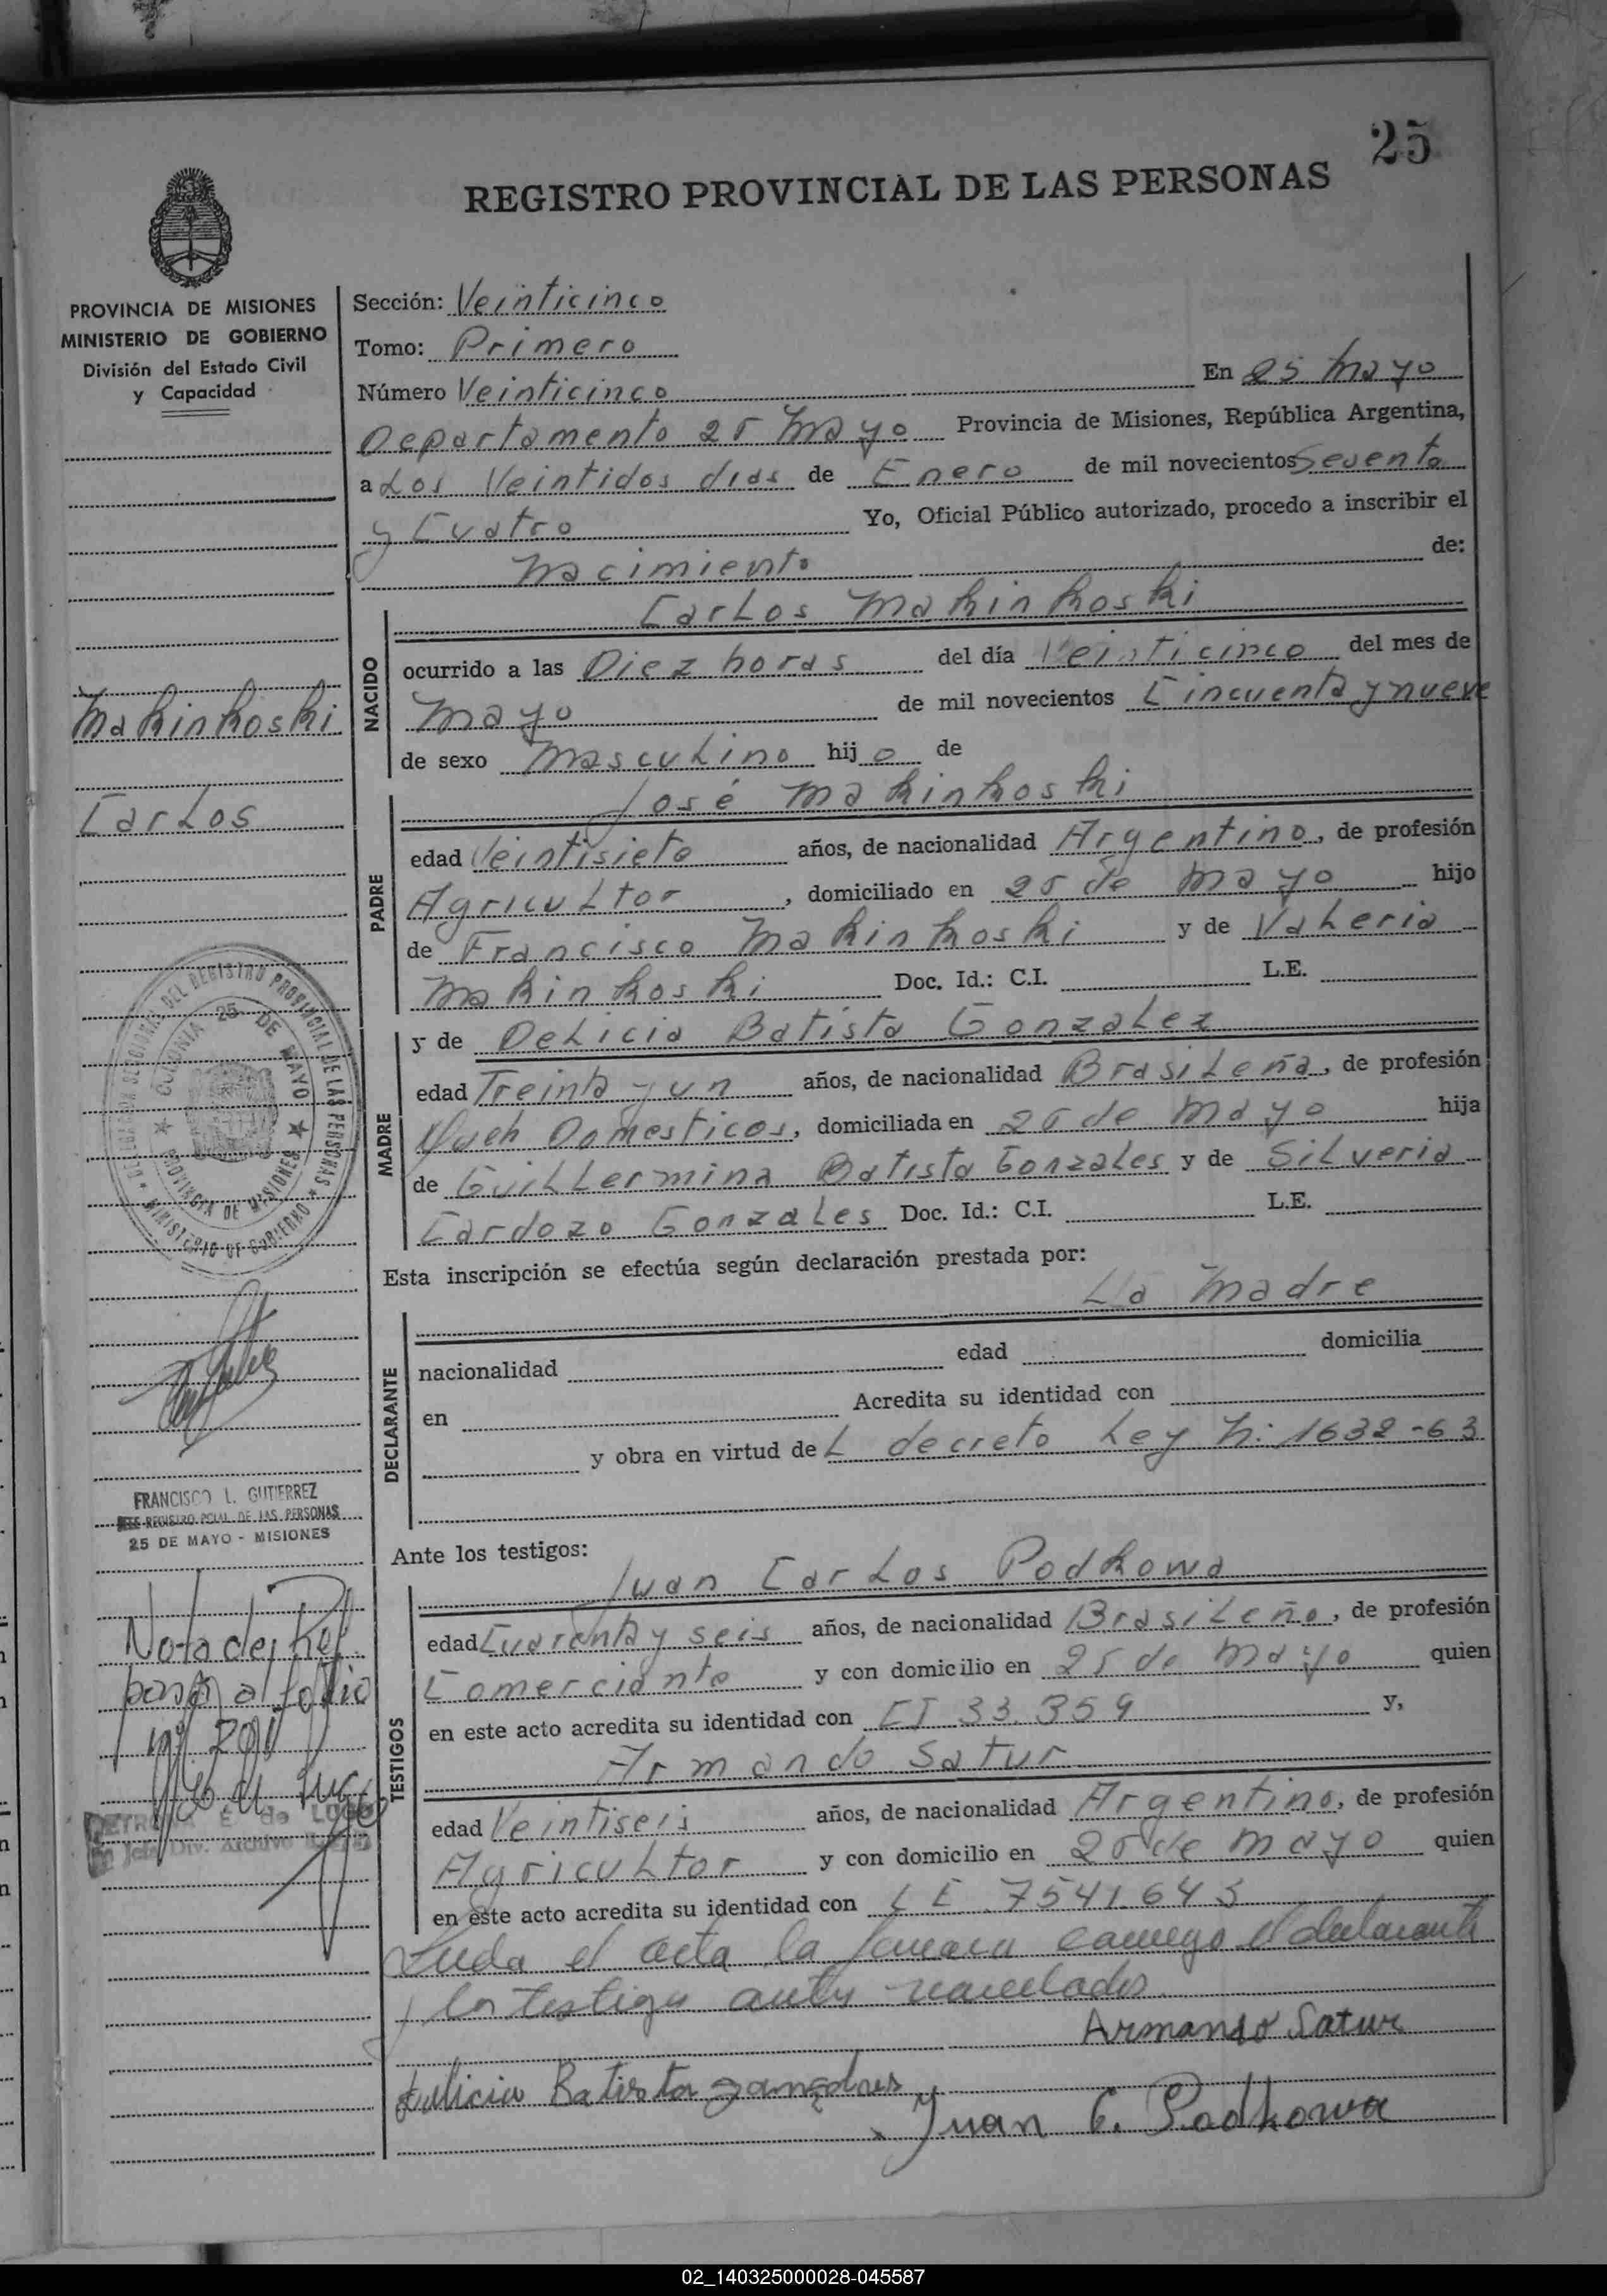 25
REGISTRO PROVINCIAL DE LAS PERSONAS
PROVINCIA DE MISIONES
MINISTERIO DE GOBIERNO
División del Estado Civil
y Capacidad
Sección: Veinticinco
Tomo: Primero
Número Veinticinco En 25 Mayo
Departamento 25 Mayo Provincia de Misiones, República Argentina,
a Los Veintidos dias de Enero de mil novecientos Sevento
y Cuatro Yo, Oficial Público autorizado, procedo a inscribir el
Nacimiento de:
Makinkoski
Carlos
NACIDO
Carlos Makinkoski
ocurrido a las Diez horas del día Veinticinco del mes de
Mayo de mil novecientos Cincuenta y nueve
de sexo Masculino hijo de
PADRE
José Makinkoski
edad Veintisiete años, de nacionalidad Argentino, de profesión
Agricultor, domiciliado en 25 de Mayo hijo
de Francisco Makinkoski y de Valeria
Makinkoski Doc. Id.: C.I. L.E.
MADRE
y de Delicia Batista Gonzalez
edad Treinta y un años, de nacionalidad Brasileña, de profesión
Domesticos, domiciliada en 25 de Mayo hija
de Guillermina Batista Gonzales y de Silveria
Cardozo Gonzales Doc. Id.: C.I. L.E.
Esta inscripción se efectúa según declaración prestada por:
DECLARANTE
La Madre
nacionalidad edad domicilia
en Acredita su identidad con
y obra en virtud de L decreto Ley N: 1632-63
Ante los testigos:
TESTIGOS
Juan Carlos Podkowa
edad Cuarenta y seis años, de nacionalidad Brasileño, de profesión
Comerciante y con domicilio en 25 de Mayo quien
en este acto acredita su identidad con CI 33.359 y,
Armando Satur
edad Veintiseis años, de nacionalidad Argentino, de profesión
Agricultor y con domicilio en 25 de Mayo quien
en este acto acredita su identidad con LE 7541.643
Leida el acta la firman conmigo el declarante
y los testigos antes nombrados.
Armando Satur
Delicia Batista
Juan C. Podkowa
DELEGACION SECCIONAL DEL REGISTRO PROVINCIAL DE LAS PERSONAS
MINISTERIO DE GOBIERNO
COLONIA 25 DE MAYO
PROVINCIA DE MISIONES
FRANCISCO L. GUTIERREZ
JEFE REGISTRO PCIAL. DE LAS PERSONAS
25 DE MAYO - MISIONES
Nota de Ref.
pasa al folio
nº 200
PETRONA E. de LUGO
Jefa Div. Archivo
02_140325000028-045587